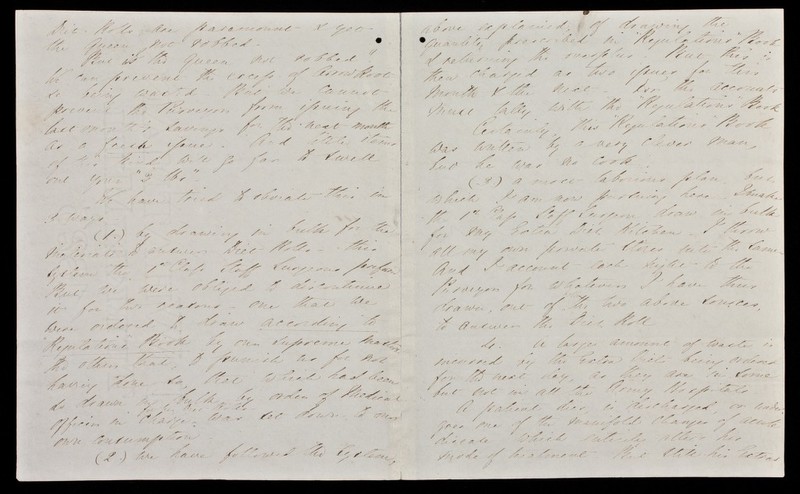 Diet Rolls are paramount & yet
the Queen not robbed.
But is the Queen not robbed?
We can prevent the excess of
being wasted. But we cannot
prevent the Purveyor from issuing the
last month's savings for the next month
as a fresh issue. And little items
of this kind will go far to swell
our "3 lbs"
We have tried to obviate this in
3 ways
(1.) by drawing in bulk for the
Diet Rolls. this
system the 1st Class Staff Surgeons prefer
But, we were obliged to discontinue
it for two reasons, one that we
were ordered to draw according to
Regulations Book by our supreme master
the other that, to punish us for not
having done so, that which had been
so drawn in bulk by order of Medical
Officer in Charge, was set down to our
own consumption.
(2.) we have followed the system,
above explained, of drawing the
quantity prescribed in "Regulations" Book
& returning the surplus. But this is
then charged as two issues for this
month & the next. for the accounts
must tally with the Regulations Book
Certainly, this "Regulations" Book
was written by a very clever man,
but he was no cook.
(3) a more laborious plan, but
which I am now pursuing here. I make
the 1st Class Staff Surgeon draw in bulk
for my Extra Diet Kitchen. I throw
all my own private Stores into the same
And I account each night to the
Purveyor for whatever I have thus
drawn, out of the two above sources,
to answer the Diet Roll
A larger amount of waste is
incurred by the Extra Diets being ordered
for the next day, as they are in some
but not in all the Army Hospitals
A patient dies, is discharged, or under-
goes one of the manifold changes of acute
disease which entirely alters his
mode of treatment. But still his Extras